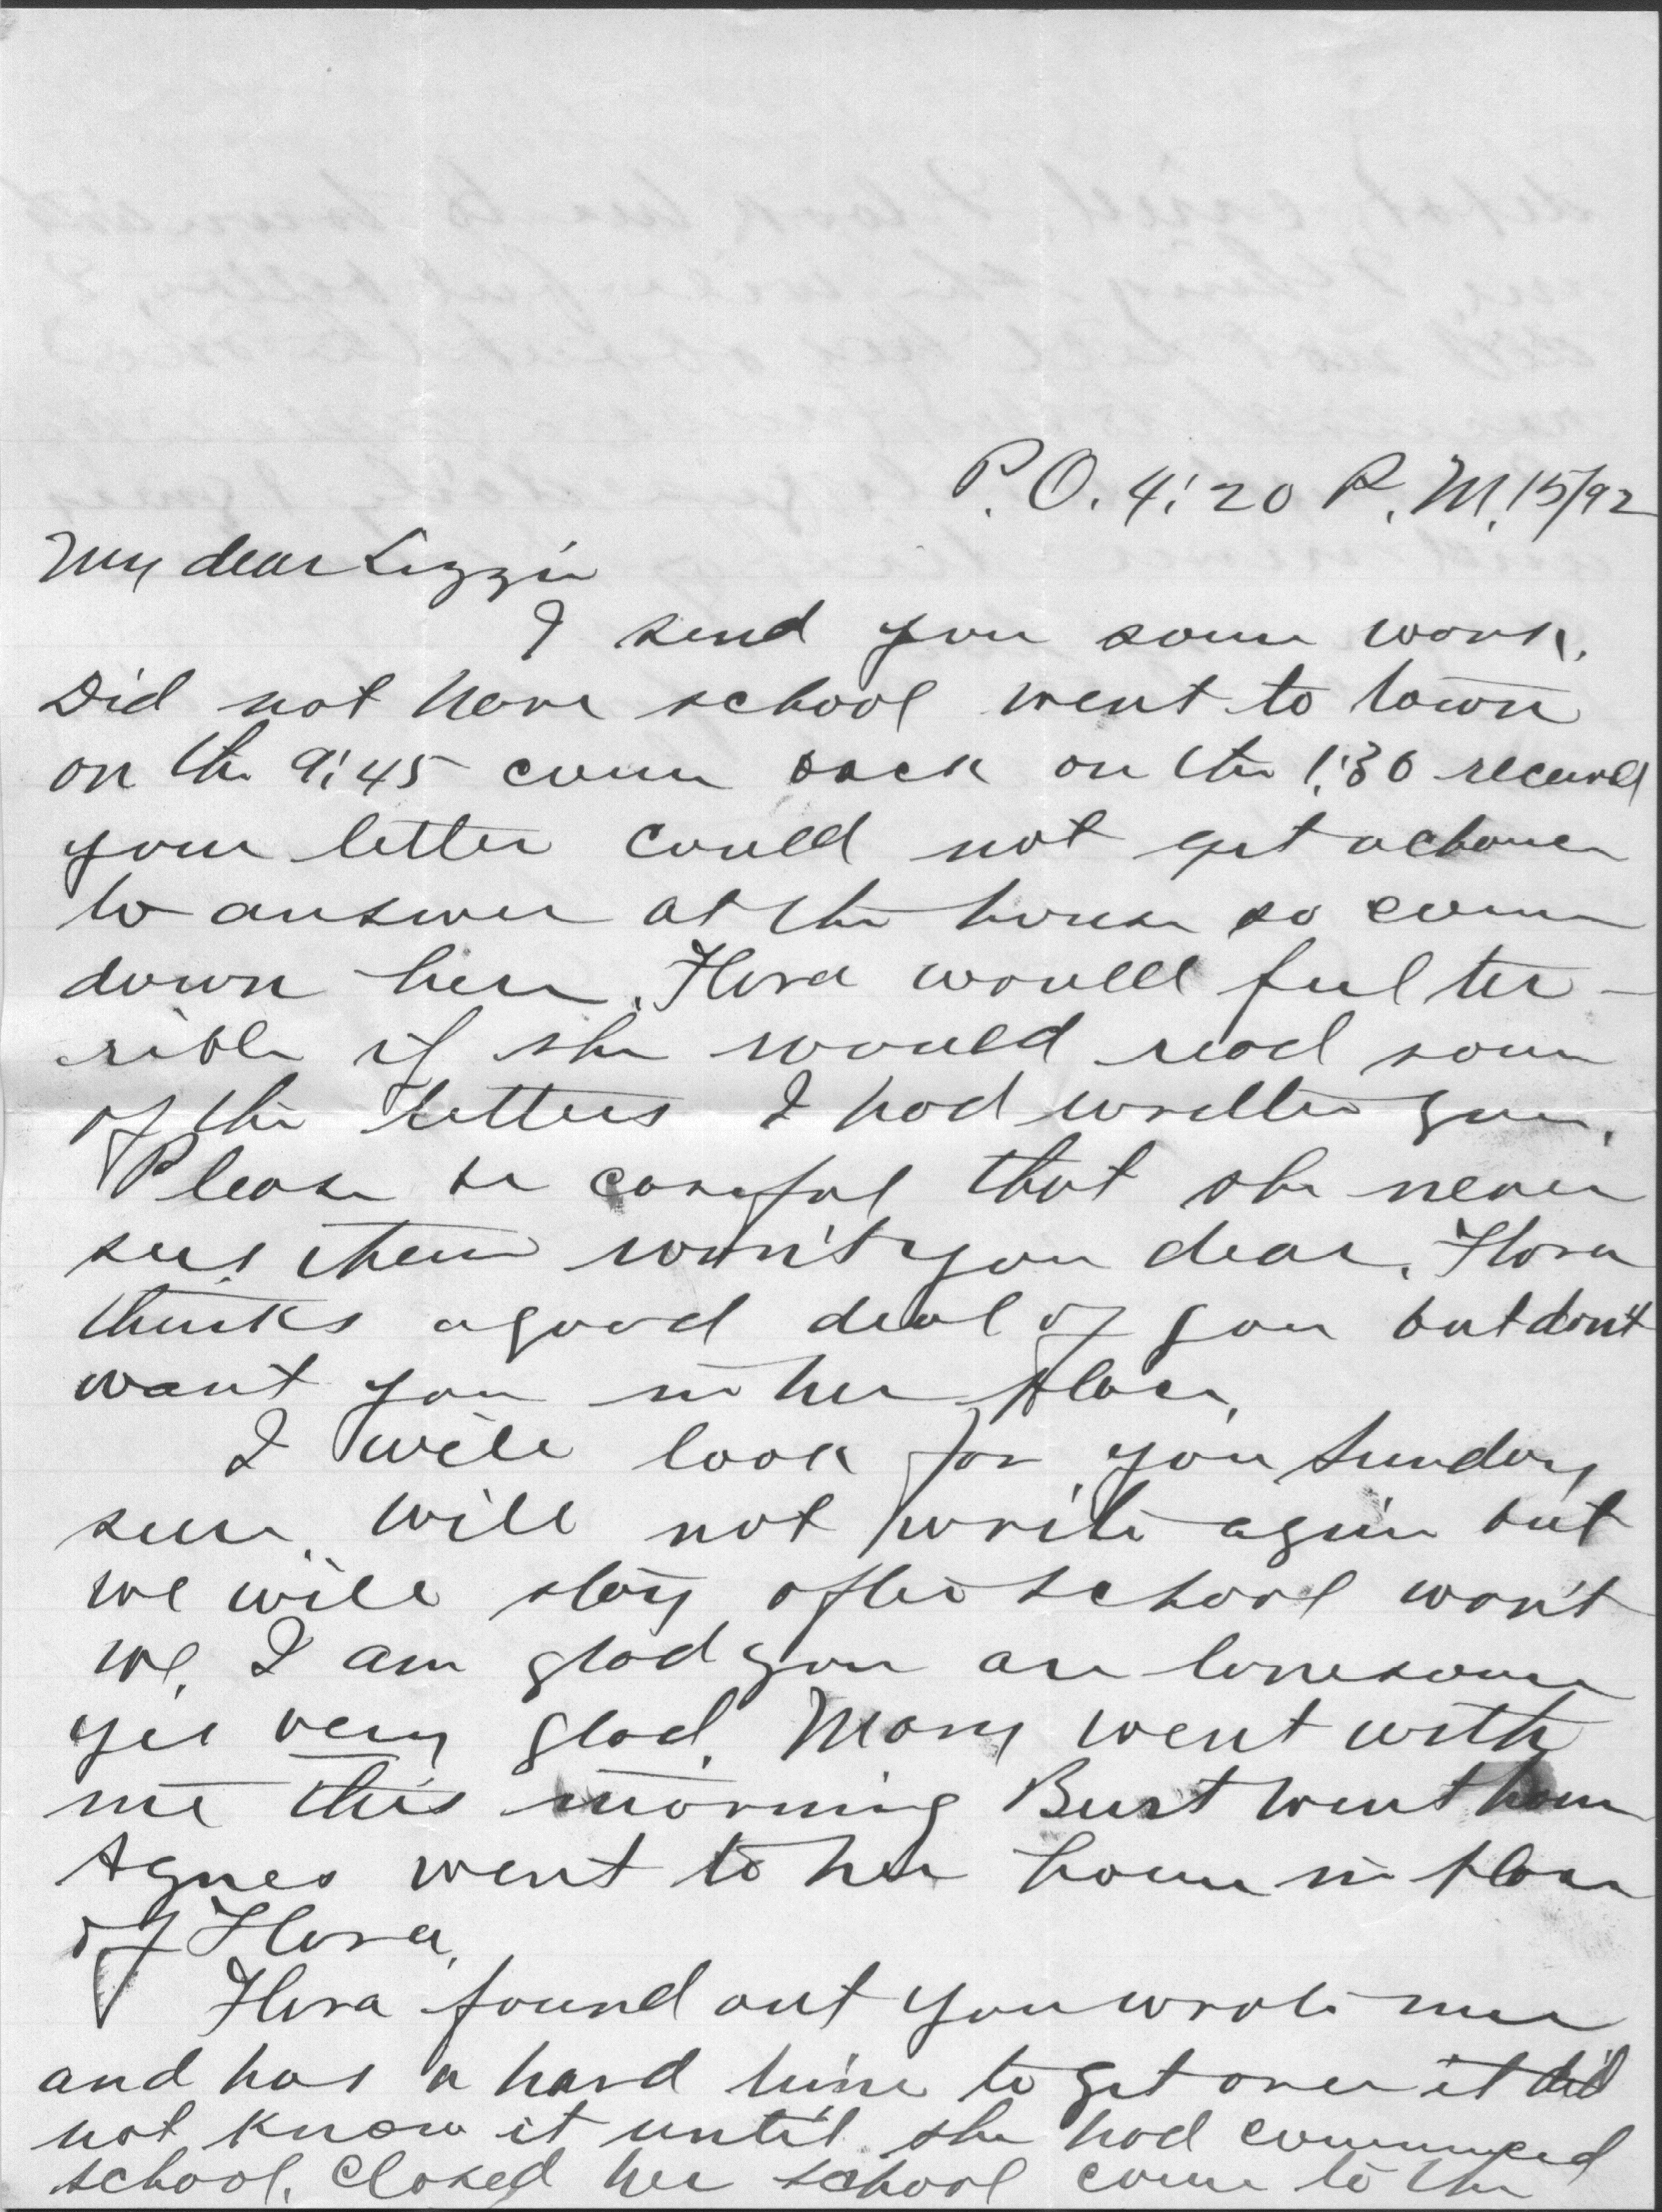 P.O. 4:20 P.M. 15/92
My dear Lizzie
I send you some work.
Did not have school went to town
on the 9:45 come back on the 1:30 received
your letter could not get a chance
to answer at the house so come
down here. Flora would feel ter-
rible if she would read some
of the letters I had written you.
Please be careful that she never
sees them won't you dear. Flora
thinks a good deal of you but don't
want you in her place.
I will look for you Sunday
sure will not write again but
we will stay after school won't
we. I am glad you are lonesome
yes very glad. Mary went with
me this morning Burt went home
Agnes went to her home in place
of Flora.
Flora found out you wrote me
and has a hard time to get over it did
not know it until she had commenced
school. Closed her school come to the